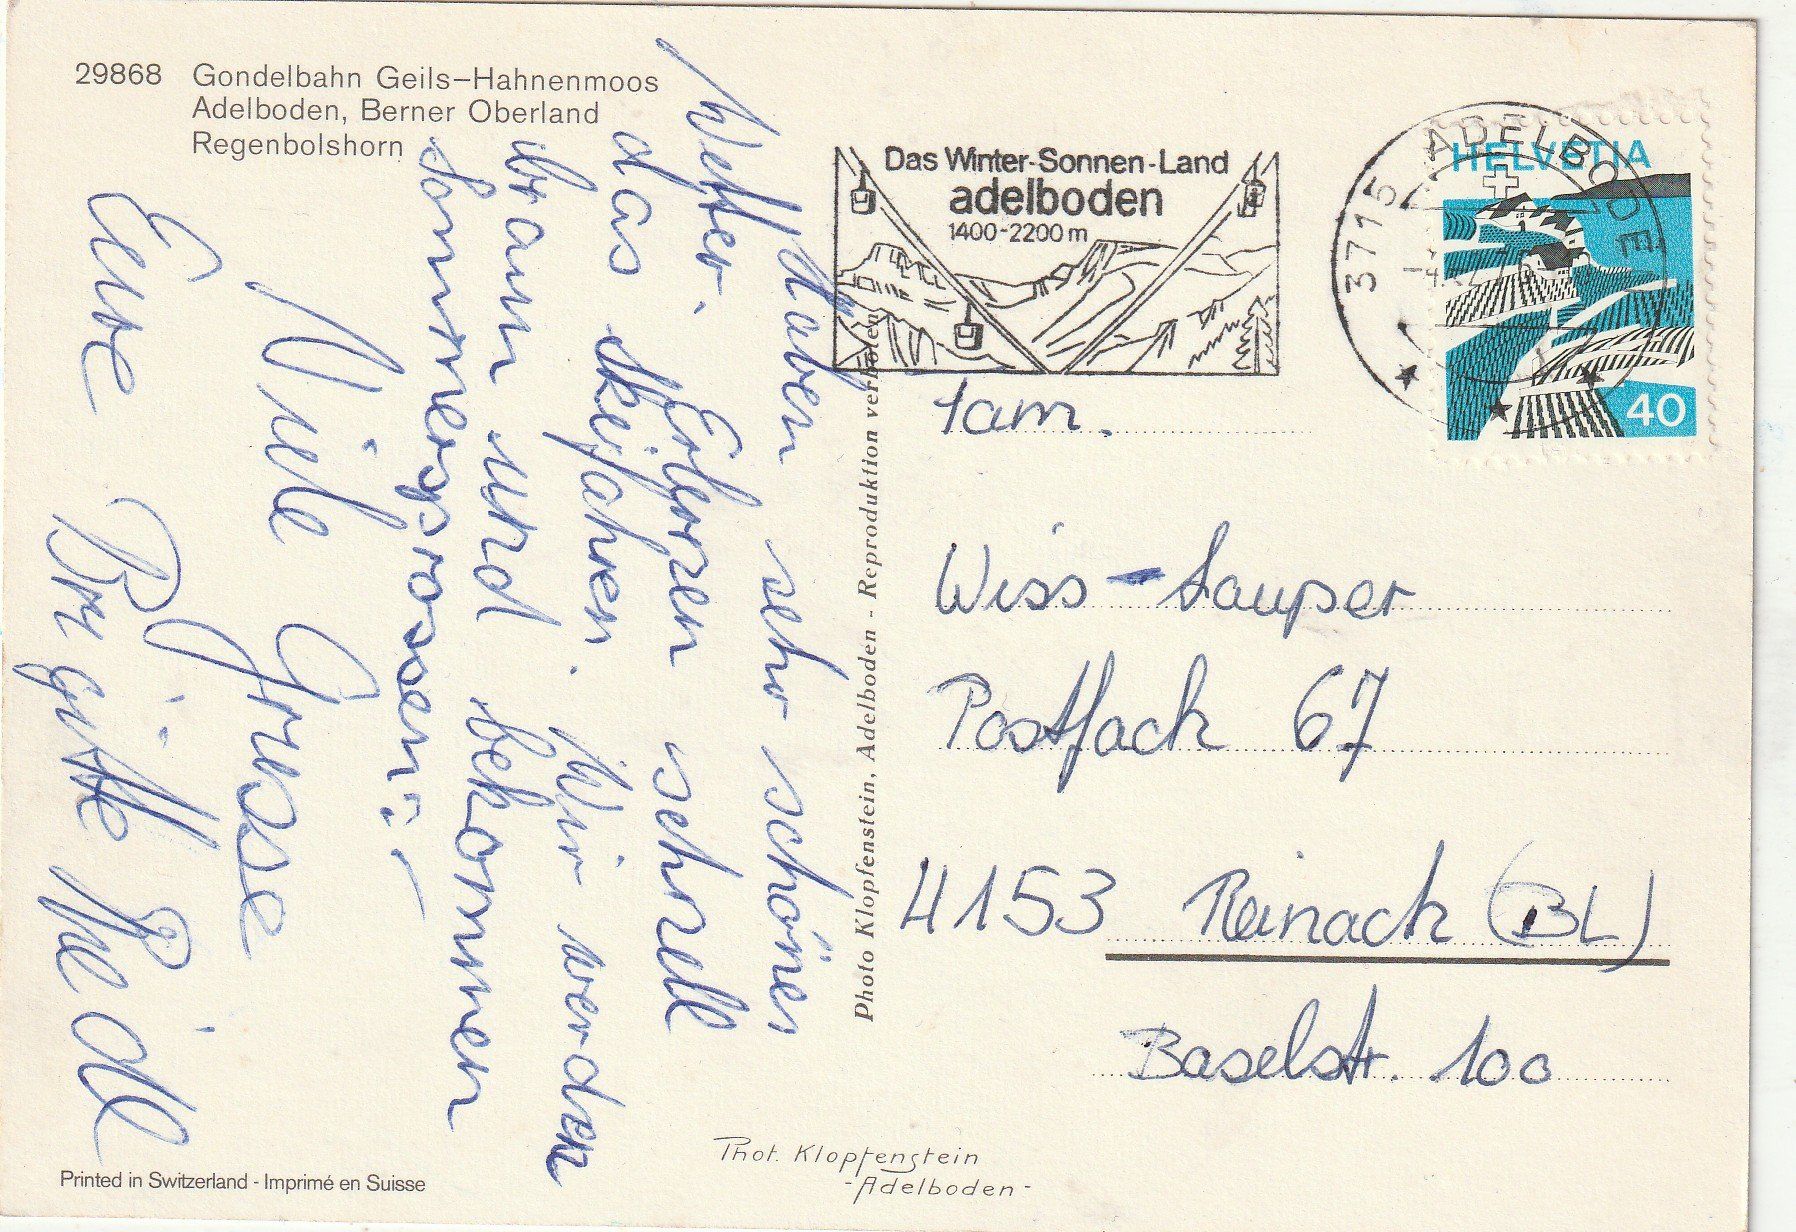 29868 Gondelbahn Geils–Hahnenmoos
Adelboden, Berner Oberland
Regenbolshorn
Haben sehr schönes
Wetter. Erlernen schnell
das Skifahren. Wir werden
braun und bekommen
Sommersprossen!
Viele Grüsse
Eure Brigitte Riedl
Printed in Switzerland - Imprimé en Suisse
Photo Klopfenstein, Adelboden - Reproduktion verboten
Phot. Klopfenstein
-Adelboden-
Das Winter-Sonnen-Land
adelboden
1400-2200 m
3715 ADELBODEN
HELVETIA
40
Fam.
Wiss-Lauper
Postfach 67
4153 Reinach (BL)
Baselstr. 100